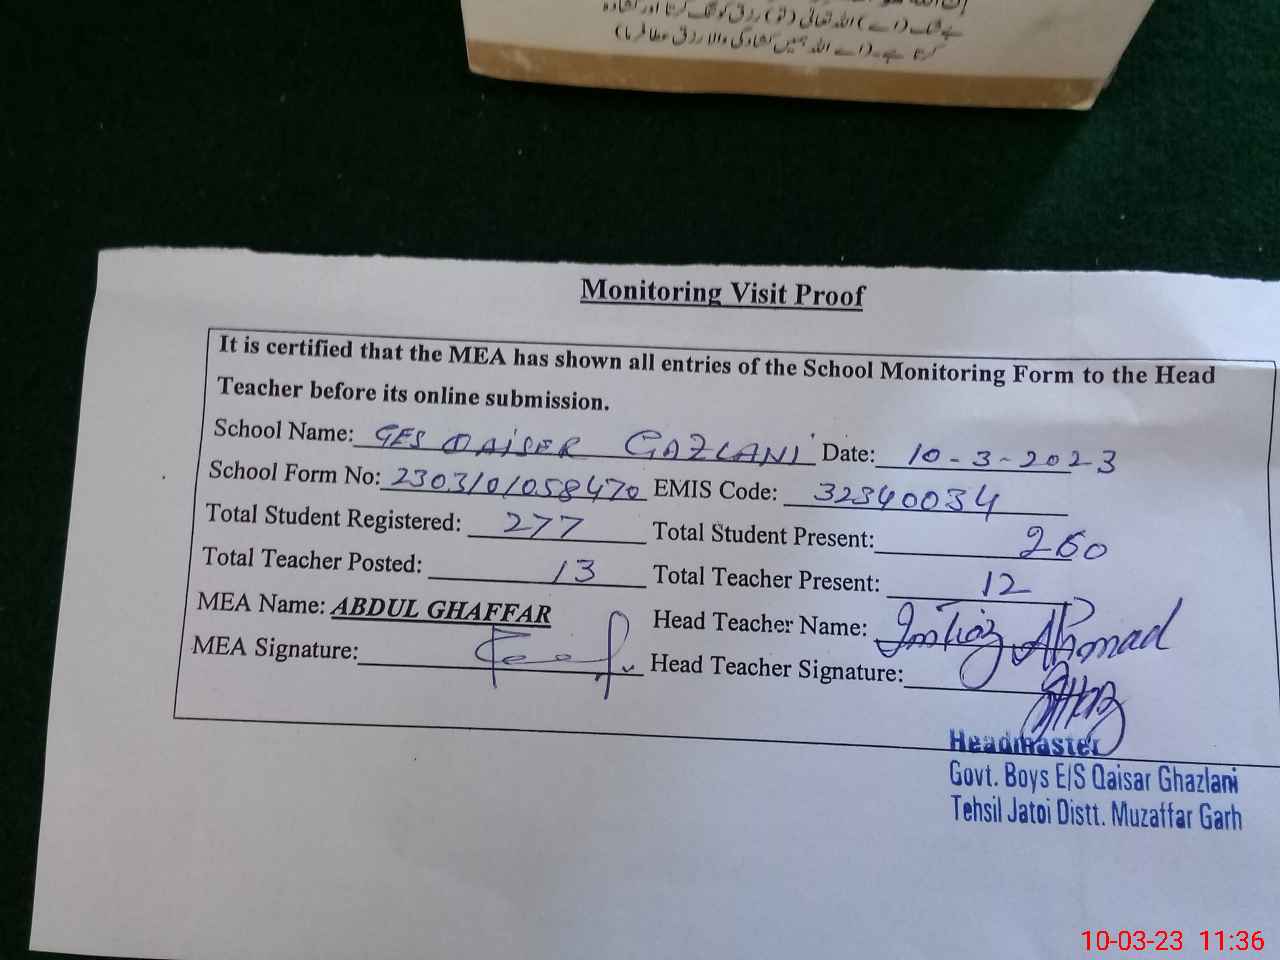 بے شک (اے) اللہ تعالیٰ (تو) رزق کو تنگ کرتا اور کشادہ
کرتا ہے۔ (اے اللہ ہمیں کشادگی والا رزق عطا فرما)
Monitoring Visit Proof
It is certified that the MEA has shown all entries of the School Monitoring Form to the Head
Teacher before its online submission.
School Name: GES QAISER GAZLANI Date: 10-3-2023
School Form No: 2303/0/058470 EMIS Code: 32340034
Total Student Registered: 277 Total Student Present: 260
Total Teacher Posted: 13 Total Teacher Present: 12
MEA Name: ABDUL GHAFFAR Head Teacher Name: Imtiaz Ahmad
MEA Signature: Head Teacher Signature:
Headmaster
Govt. Boys E/S Qaisar Ghazlani
Tehsil Jatoi Distt. Muzaffar Garh
10-03-23 11:36